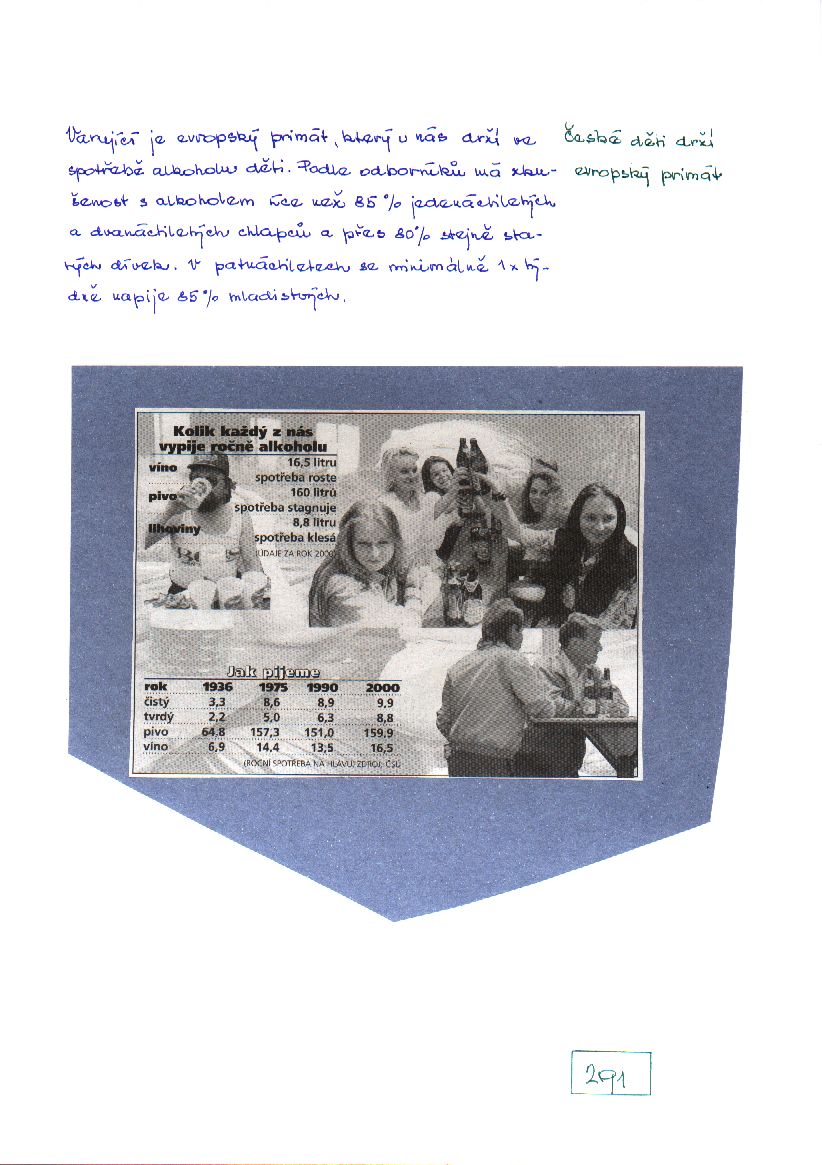 Varující je evropský primát, který u nás drží ve
spotřebě alkoholu děti. Podle odborníků má zku-
šenost s alkoholem více než 85 % jedenáctiletých
a dvanáctiletých chlapců a přes 80 % stejně sta-
rých dívek. V patnáctiletech se minimálně 1x tý-
dně napije 85 % mladistvých.
České děti drží
evropský primát
Kolik každý z nás
vypije ročně alkoholu
víno 16,5 litru
spotřeba roste
pivo 160 litrů
spotřeba stagnuje
lihoviny 8,8 litru
spotřeba klesá
(ÚDAJE ZA ROK 2000)
Jak pijeme
rok 1936 1975 1990 2000
čistý 3,3 8,6 8,9 9,9
tvrdý 2,2 5,0 6,3 8,8
pivo 64,8 157,3 151,0 159,9
víno 6,9 14,4 13,5 16,5
(ROČNÍ SPOTŘEBA NA HLAVU, ZDROJ: ČSÚ
291